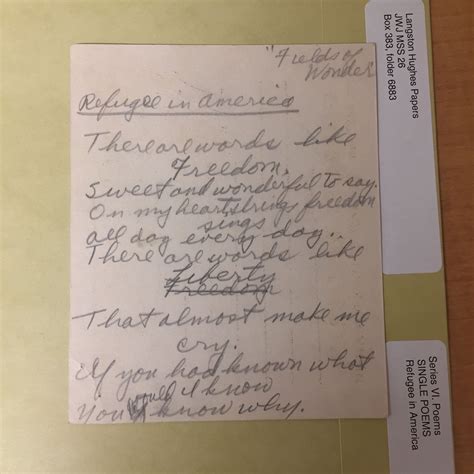 "Fields of
Wonder
Refugee in America
There are words like
Freedom.
Sweet and wonderful to say.
On my heartstrings freedom
sings
all day every day..
There are words like
Liberty
Freedom
That almost make me
cry.
If you had known what
I know
You would know why.
Langston Hughes Papers
JWJ MSS 26
Box 383, folder 6883
Series VI. Poems
SINGLE POEMS
Refugee in America